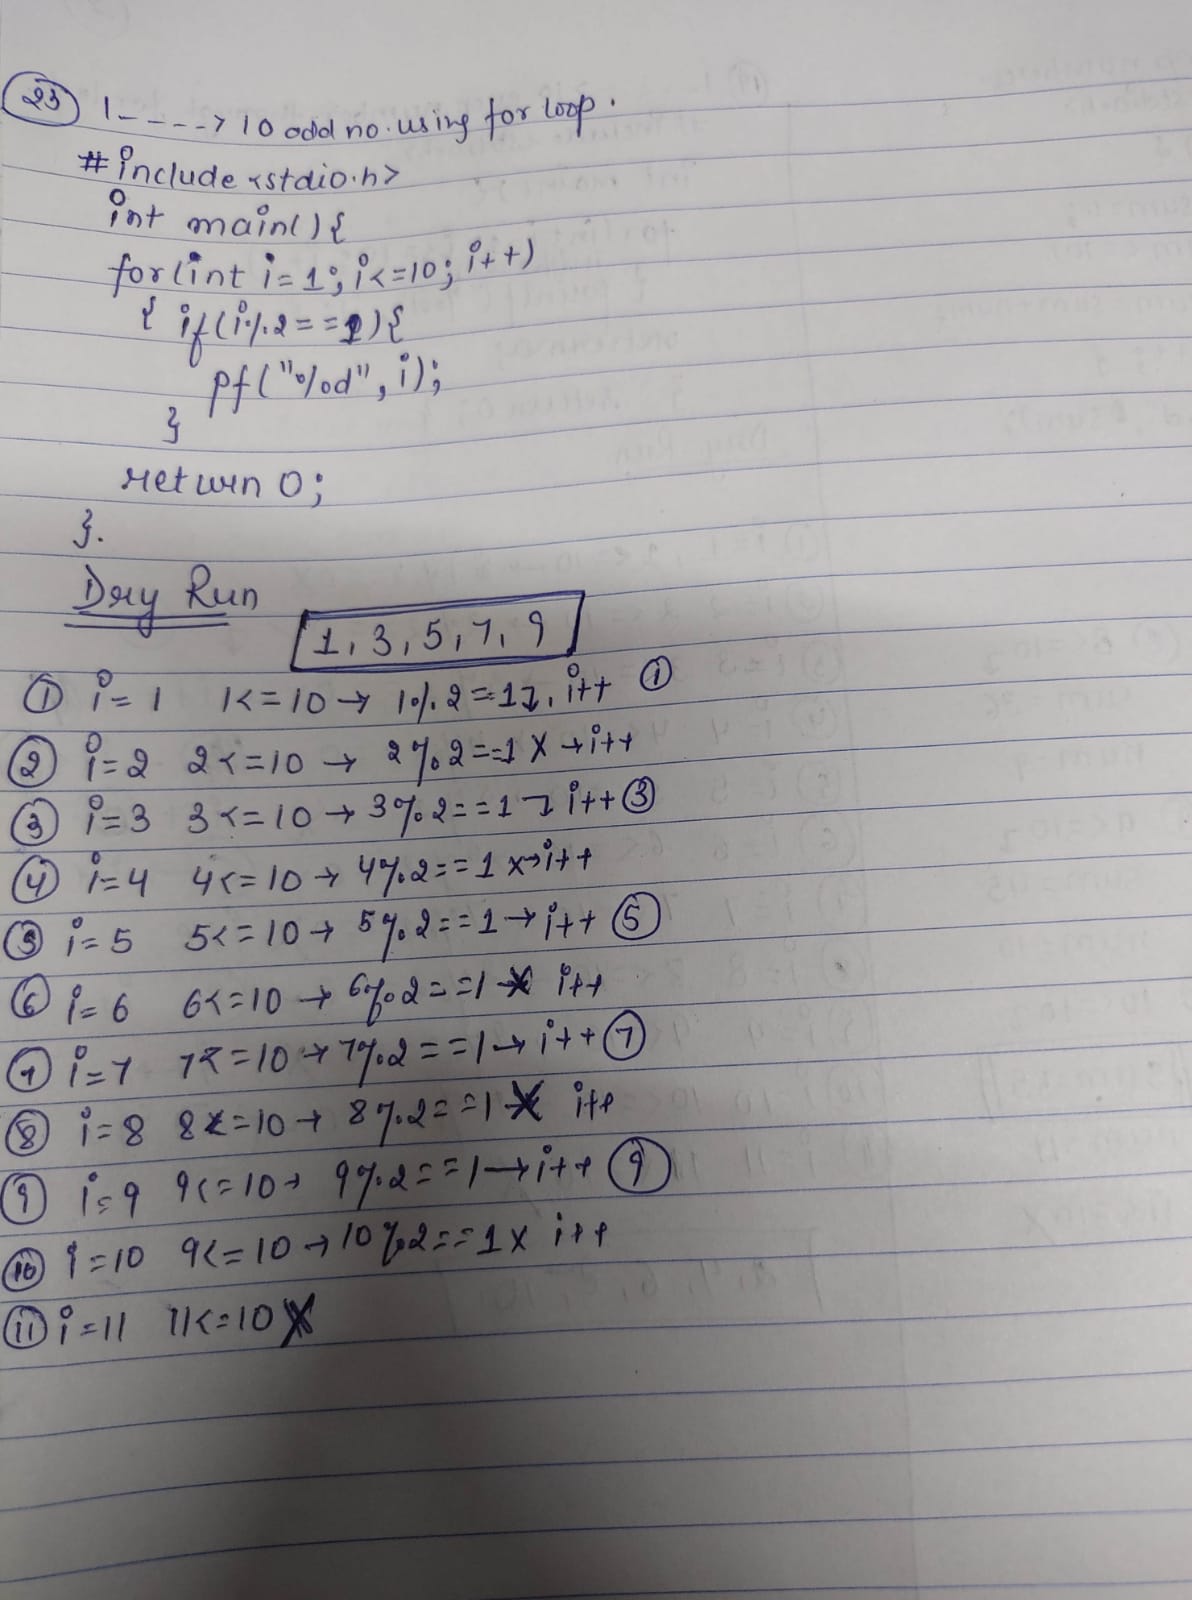 23 1----> 10 odd no. using for loop.
#include <stdio.h>
int main(){
for(int i=1; i<=10; i++)
{ if(i%2==1){
pf("%d", i);
}
return 0;
}.
Dry Run
1, 3, 5, 7, 9
① i=1 1<=10 → 1%2==1 i++ ①
② i=2 2<=10 → 2%2==1 x → i++
③ i=3 3<=10 → 3%2==1 i++ ③
④ i=4 4<=10 → 4%2==1 x→ i++
⑤ i=5 5<=10 → 5%2==1 → i++ ⑤
⑥ i=6 6<=10 → 6%2==1 x i++
⑦ i=7 7<=10 → 7%2==1 → i++ ⑦
⑧ i=8 8<=10 → 8%2==1 X i++
⑨ i=9 9<=10 → 9%2==1 → i++ ⑨
⑩ i=10 9<=10 → 10%2==1 x i++
⑪ i=11 11<=10 X